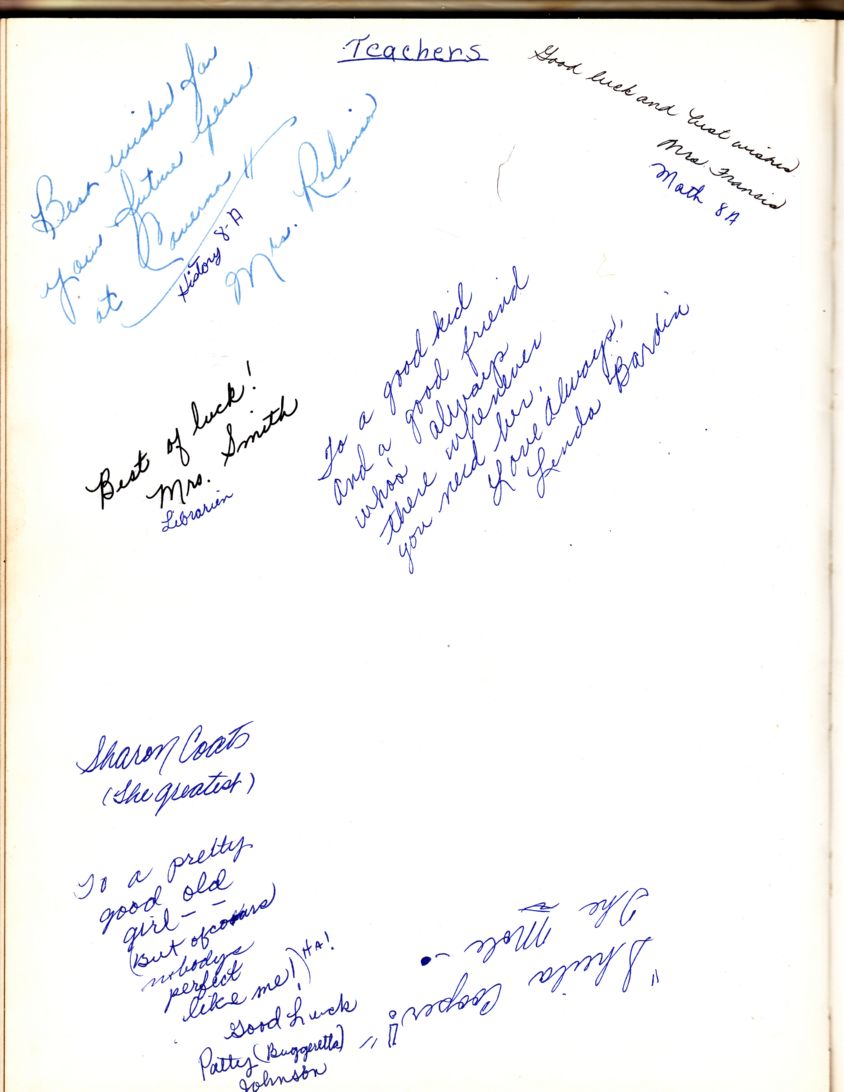 Teachers
Best wishes for
your future years
at Caverna
History 8-A
Mrs. Robinson
Good luck and best wishes
Mrs. Francis
Math 8A
Best of luck!
Mrs. Smith
Librarien
To a good kid
and a good friend
who's always
there whenever
you need her.
Love Always,
Lenda Bardin
Sharon Coats
(The greatest)
To a pretty
good old
girl--
(But of cours
nobodys
perfect
like me!) HA!
Good Luck
Patty (Buggeretta)
Johnson
"Sheila Cooper!"
The Mole